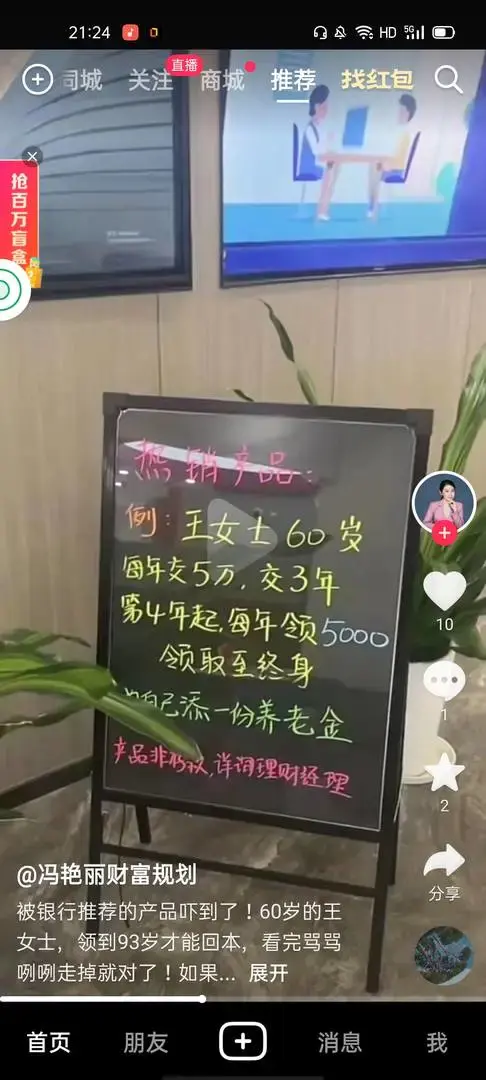 21:24
HD 5G
同城 关注 直播 商城 推荐 找红包
抢百万盲盒
热销产品:
例: 王女士 60岁
每年交5万, 交3年
第4年起, 每年领5000
领取至终身
自己添一份养老金
产品非存款, 详询理财经理
10
1
2
分享
@冯艳丽财富规划
被银行推荐的产品吓到了！60岁的王
女士，领到93岁才能回本，看完骂骂
咧咧走掉就对了！如果... 展开
首页 朋友 消息 我